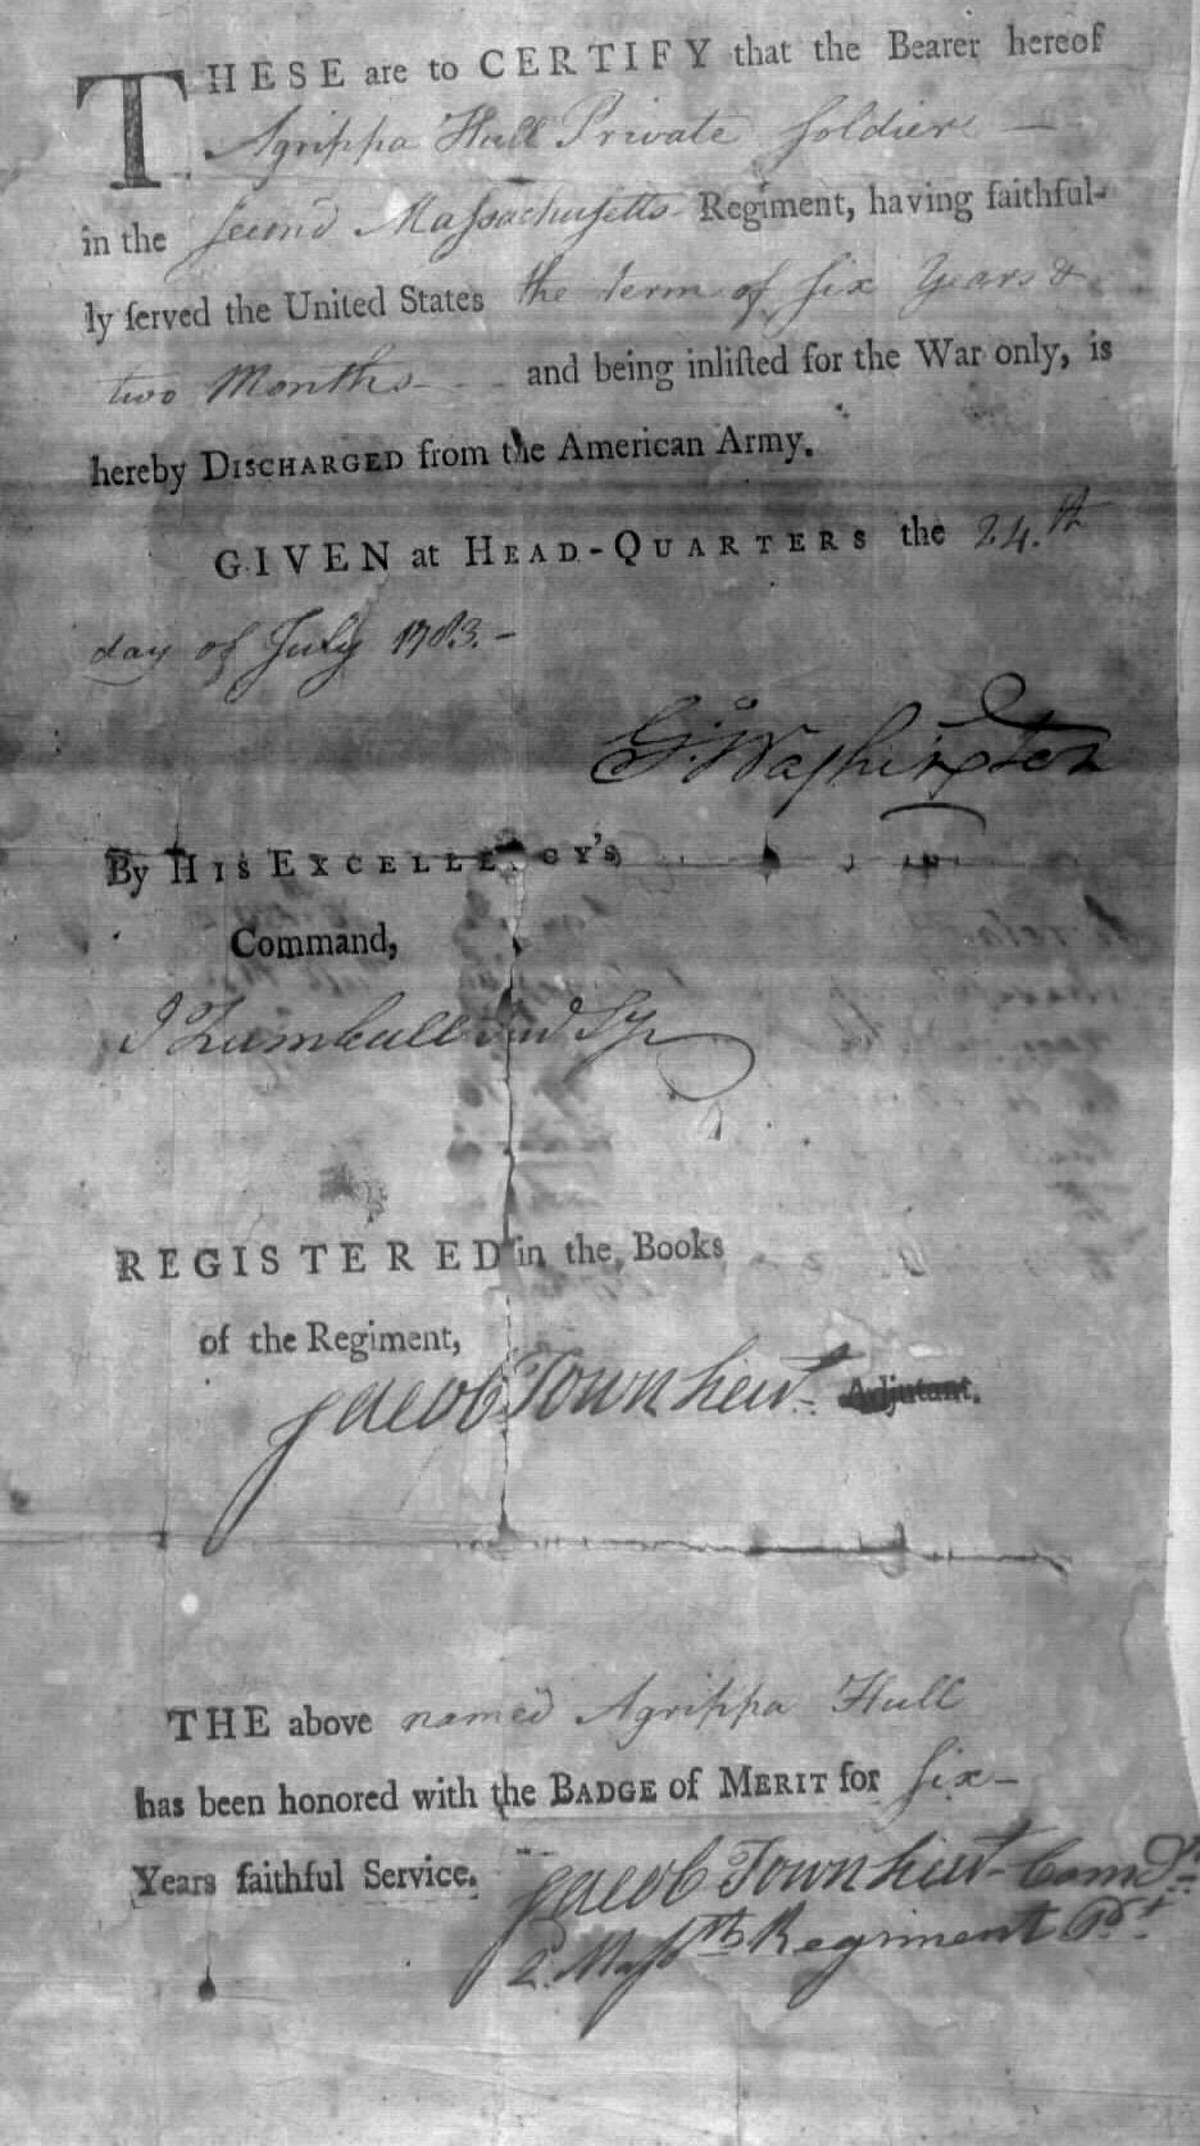 THESE are to CERTIFY that the Bearer hereof
Agrippa Hull Private Soldier —
in the second Massachusetts Regiment, having faithful-
ly ſerved the United States the term of six Years &
two Months - - and being inliſted for the War only, is
hereby DISCHARGED from the American Army.
GIVEN at HEAD-QUARTERS the 24.th
day of July 1783. -
Go. Washington
By HIS EXCELLENCY'S
Command,
J Trumbull Jun Sy
REGISTERED in the Books
of the Regiment,
Jacob Town Adjutant.
THE above named Agrippa Hull
has been honored with the BADGE of MERIT for six -
Years faithful Service. Jacob Town
2. Masstts Regiment